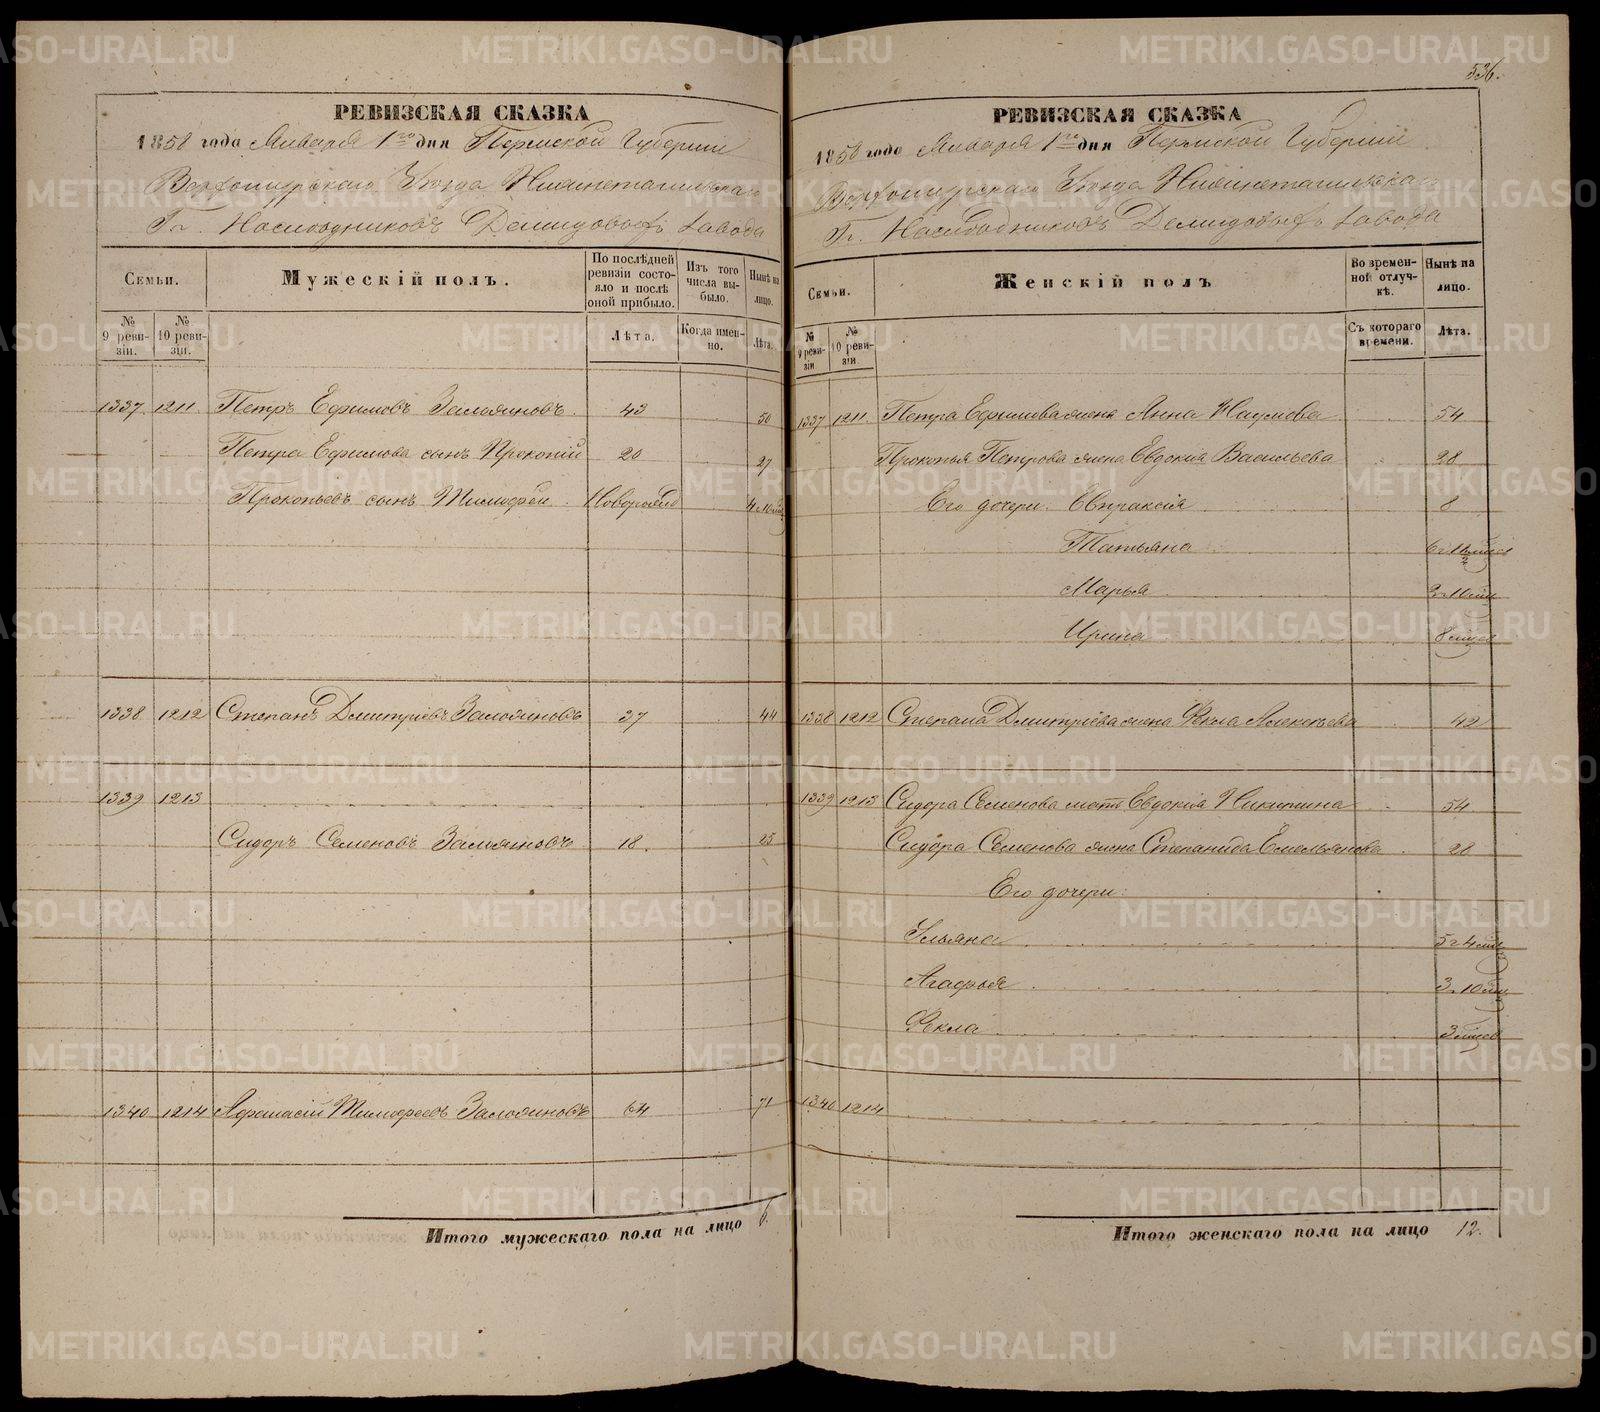 РЕВИЗСКАЯ СКАЗКА
1858 года Января 1го дня Пермской Губернии
Верхотурскаго Уезда Нижнетагильскаго
Гг. Наследниковъ Демидовыхъ завода
Семьи.
Мужескій полъ.
По послѣдней ревизіи состояло и послѣ оной прибыло.
Изъ того числа выбыло.
Нынѣ на лицо.
№ 9 ревизіи.
№ 10 ревизіи.
Лѣта.
Когда именно.
Лѣта.
1337 1211 Петръ Ефимовъ 43 50
Петра Ефимова сынъ Прокопій 20 27
Прокопьевъ сынъ Тимофей
1338 1212 Степанъ Дмитріевъ 37 44
1339 1213
Сидоръ Семеновъ 18. 25
1340 1214 Афанасій Тимофеевъ 64 71
Итого мужескаго пола на лицо 6.
536.
РЕВИЗСКАЯ СКАЗКА
1858 года Января 1го дня Пермской Губерніи
Верхотурскаго Уезда Нижнетагильскаго
Гг. Наследниковъ Демидовыхъ завода
Семьи.
Женскій полъ
Во временной отлучкѣ.
Нынѣ на лицо.
№ 9 ревизіи
№ 10 ревизіи
Съ котораго времени.
Лѣта.
1337 1211 Петра Ефимова жена Анна Наумова 54
Прокопья Петрова жена Евдокія Васильева 28
Его дочери Евпраксія 8
Татьяна
Марья
Ирина 8 мѣсев
1338 1212 Степана Дмитріева жена Фекла Алексѣева 42
1339 1213 Сидора Семенова мать Евдокія Никитина 54
Сидора Семенова жена Степанида Емельянова 28
Его дочери:
Ульяна
Агафья
Фекла 3 мѣсев
1340 1214
Итого женскаго пола на лицо 12.
METRIKI.GASO-URAL.RU